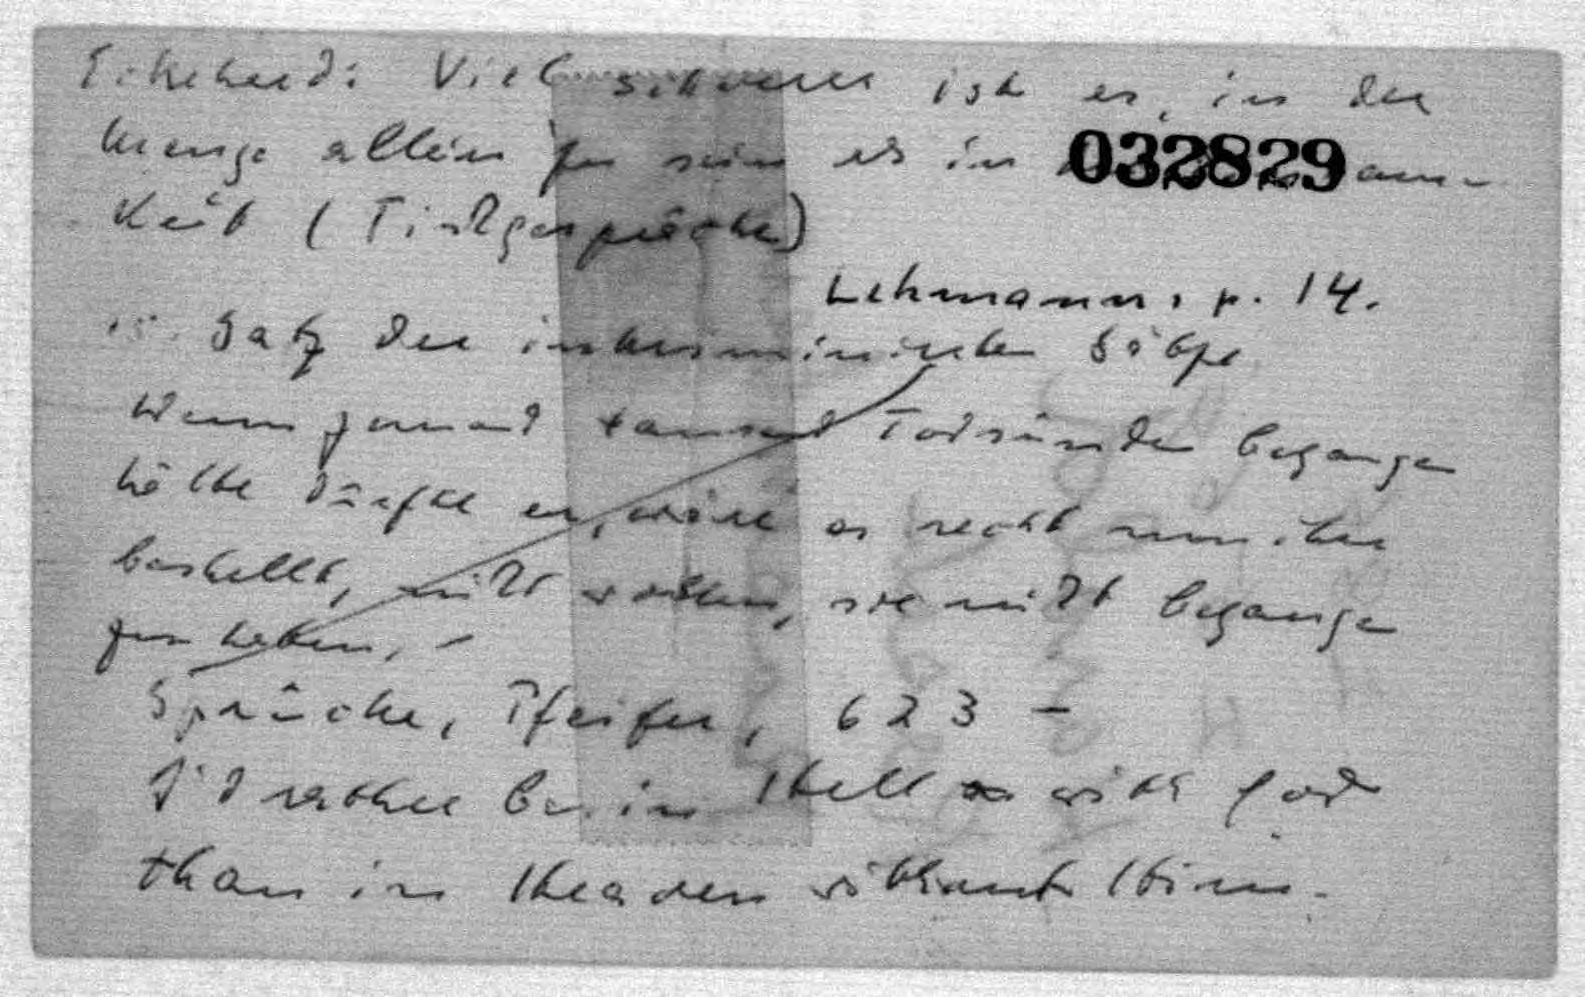 Eckehard: Viel schwerer ist es, in der
Menge allein zu sein als in 032829 am-
keit (Tischgespräche)
Lehmann, p. 14.
15. Satz der inkriminierten Sätze
Wenn jemand tausend Todsünden begangen
hätte dürfte er, wäre es recht um ihn
bestellt, nicht wollen, sie nicht begangen
zu haben, -
Sprüche, Pfeifer, 623 -
I'd rather be in Hell with God
than in Heaven without Him.